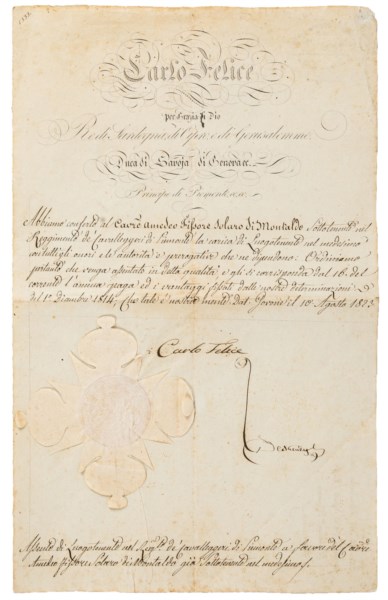 Carlo Felice
per Grazia di Dio
Re di Sardegna, di Cipro e di Gerusalemme
Duca di Savoja, di Genova ec.
Principe di Piemonte ec. ec.
Abbiamo conferto al Cav.re Amedeo Ettore Solaro di Montaldo, Sottotenente nel
Reggimento de' Cavalleggeri di Piemonte la carica di Luogotenente nel medesimo
con tutti gli onori e le autorità e prerogative che ne dipendono: Ordiniamo
pertanto che venga assentato in detta qualità e gli si corrisponda dal 16 del
corrente l'annua paga ed i vantaggi fissati dalle nostre determinazioni
del 1º Dicembre 1814; Che tale è nostra mente. Dat. Govone il 10 Agosto 1825
Carlo Felice
Assento di Luogotenente nel Regg.to de' Cavalleggeri di Piemonte a favore del Cav.re
Amedeo Ettore Solaro di Montaldo già Sottotenente nel medesimo.